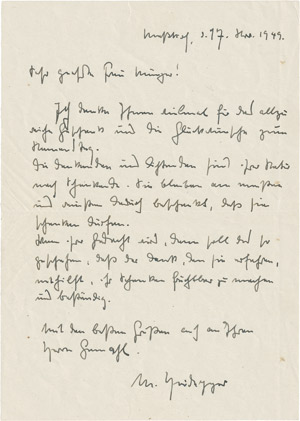 Meßkirch, d. 17. Nov. 1949.
Sehr geehrte Frau Munzer!
Ich danke Ihnen einmal für das allzu
reiche Geschenk und die Glückwünsche zum
Namenstag.
Die Denkenden und Dichtenden sind
nach Schenkende. Sie bleiben am
und wissen dadurch beschenkt, daß sie
schenken dürfen.
Wenn gedacht wird, dann soll das so
geschehen, daß der Dank, den sie erfahren,
mithilft, Schenken fruchtbar zu machen
und beständig.
Mit den besten Grüßen auch an Ihren
Herrn Gemahl
M. Heidegger